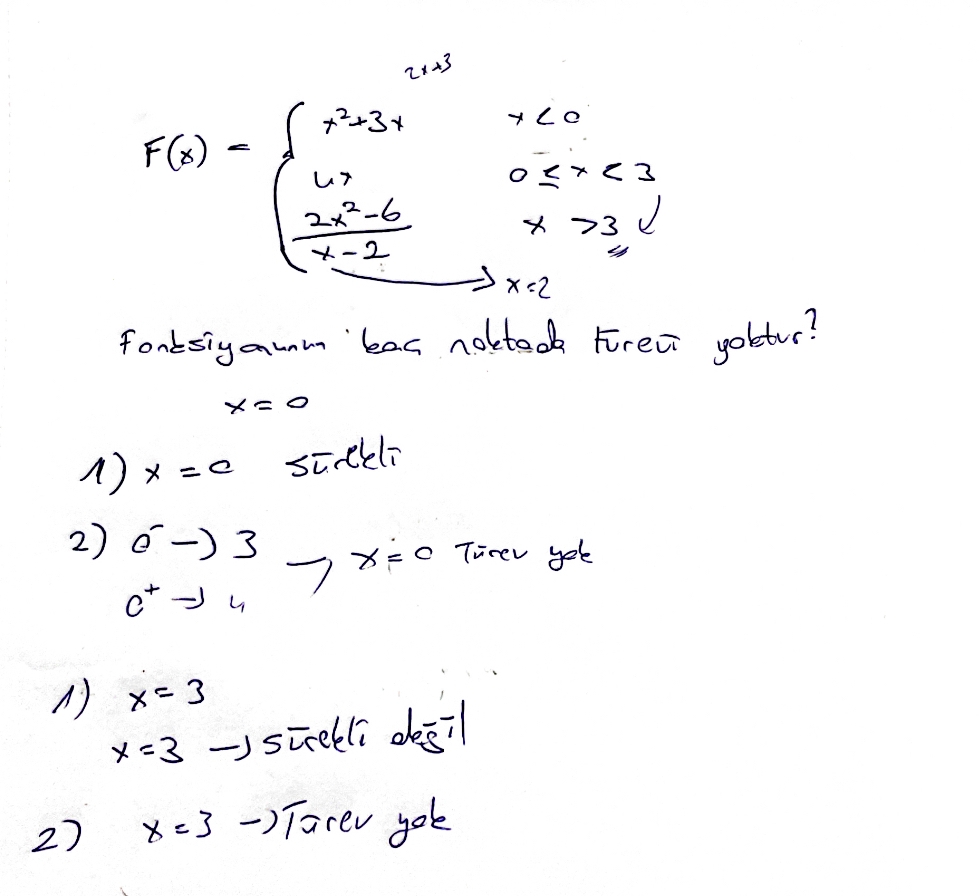 2x+3
F(x) = { x²+3x x<0
4x 0≤x<3
2x²-6 / x-2 x >3
→ x=2
Fonksiyonunun kaç noktada türevi yoktur?
x=0
1) x=0 sürekli
2) 0⁻ → 3 → x=0 Türev yok
0⁺ → 4
1) x=3
x=3 → sürekli değil
2) x=3 → Türev yok